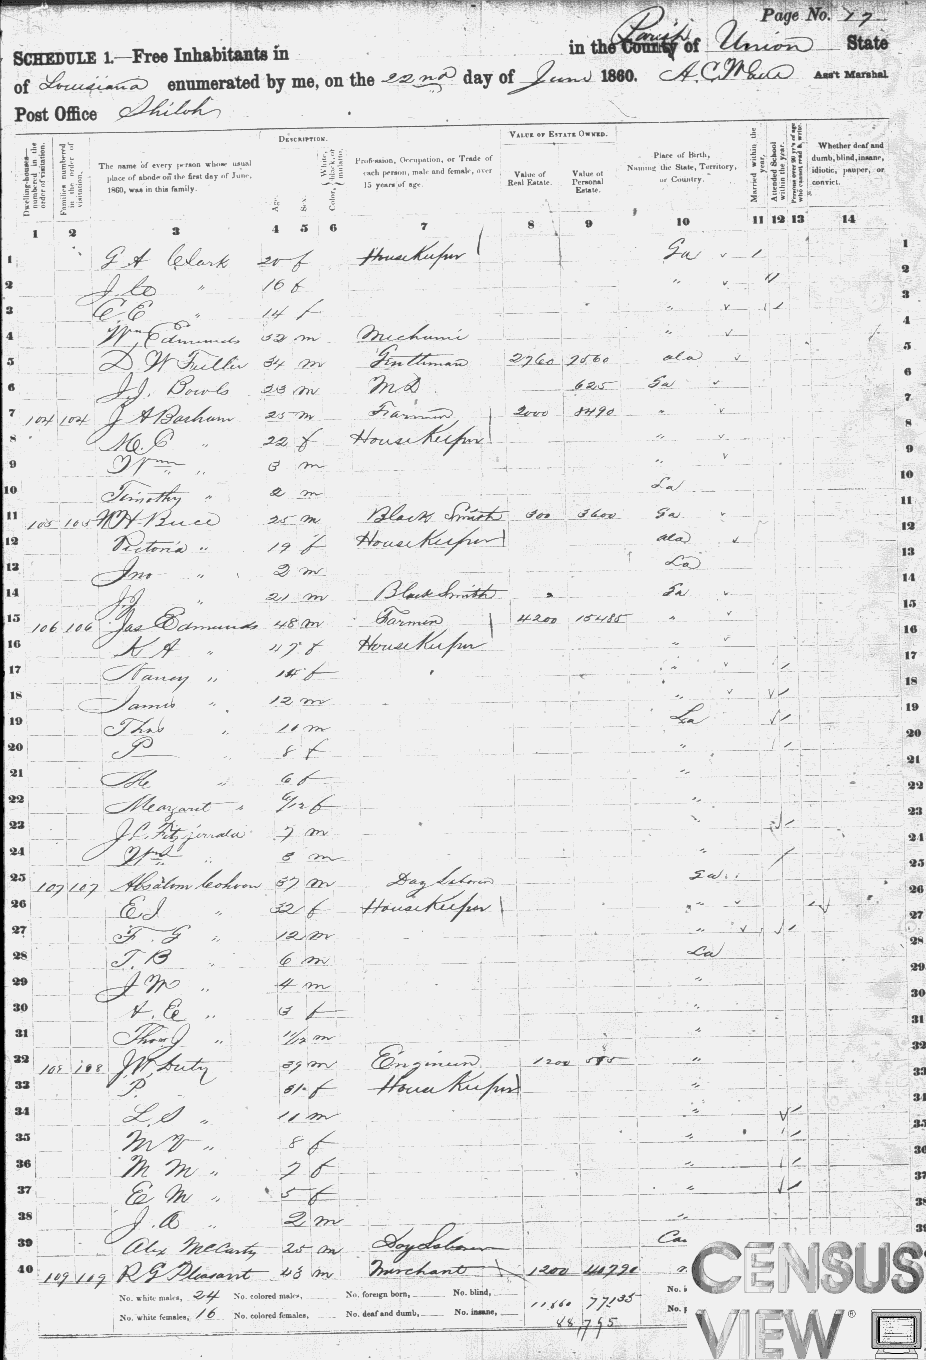 Page No. 77
SCHEDULE 1.—Free Inhabitants in in the County Parish of Union State
of Louisiana enumerated by me, on the 22nd day of June 1860. Ass't Marshal
Post Office Shiloh
Dwelling-houses numbered in the order of visitation.
Families numbered in the order of visitation.
The name of every person whose usual place of abode on the first day of June, 1860, was in this family.
DESCRIPTION.
Age.
Sex.
Color, White, black, or mulatto.
Profession, Occupation, or Trade of each person, male and female, over 15 years of age.
VALUE OF ESTATE OWNED.
Value of Real Estate.
Value of Personal Estate.
Place of Birth, Naming the State, Territory, or Country.
Married within the year.
Attended School within the year.
Persons over 20 y'rs of age who cannot read & write.
Whether deaf and dumb, blind, insane, idiotic, pauper, or convict.
1 2 3 4 5 6 7 8 9 10 11 12 13 14
1 G A Clark 20 f House Keeper Ga 1
2 " 16 f " 2
3 C E " 14 f " 3
4 Wm Edmunds 32 m Mechanic " 4
5 D W Fuller 34 m Gentleman 2760 7560 ala 5
6 J J. Bowls 23 m M D 625 Ga 6
7 104 104 J A Basham 25 m Farmer 2000 8490 " 7
8 M. C " 22 f House Keeper " 8
9 Wm " 3 m " 9
10 Timothy " 2 m La 10
11 105 105 W H Buce 25 m Black Smith 300 3600 Ga 11
12 Victoria " 19 f House Keeper ala 12
13 Jno " 2 m La 13
14 J J " 21 m Black Smith Ga 14
15 106 106 Jas Edmunds 48 m Farmer 4200 15485 " 15
16 K A " 47 f House Keeper " 16
17 Nancy " 14 f " 17
18 James " 12 m " 18
19 Thos " 10 m La 19
20 P " 8 f " 20
21 " 6 f " 21
22 Meargaret " 6/12 f " 22
23 J. C. Fitzjerrald 7 m 23
24 Wm " 3 m " 24
25 107 107 Absalom 37 m Day Laborer Ga 25
26 E J " 32 f House Keeper " 26
27 F. G " 12 m " 27
28 T. B " 6 m La 28
29 J M " 4 m " 29
30 A. E " 3 f " 30
31 Thos J " 11/12 m " 31
32 108 108 J W Duty 39 m Engineer 1200 " 32
33 P. " f House Keeper " 33
34 L. S " 11 m " 34
35 M V " 8 f " 35
36 M M " 7 f " 36
37 E M " 5 f " 37
38 J. A " 2 m " 38
39 Alex McCarty 25 m Day Laborer 39
40 109 109 R G Pleasant 43 m Merchant 1200 40790
No. white males, 24 No. colored males, No. foreign born, No. blind,
No. white females, 16 No. colored females, No. deaf and dumb, No. insane,
77135
CENSUS
VIEW